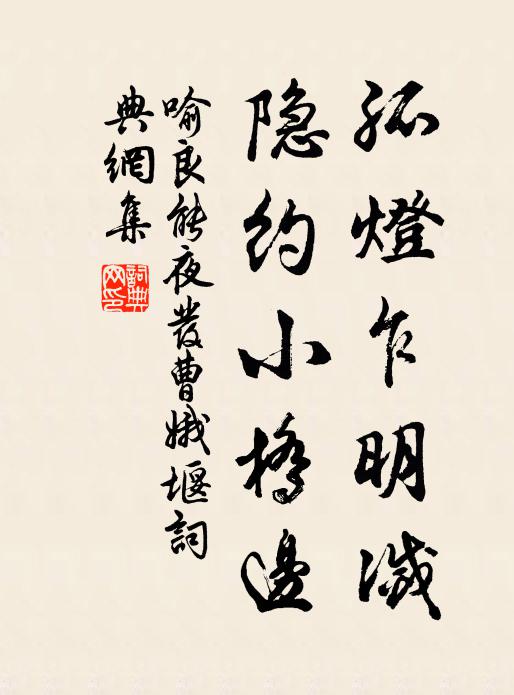 孤燈乍明滅
隐約小橋邊
喻良能夜發曹娥堰詞
典網集
詞典网印